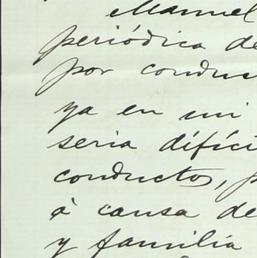 Manuel
periódica de
por conduc
ya en mi
seria difíci
conductos, p
á causa de
y familia